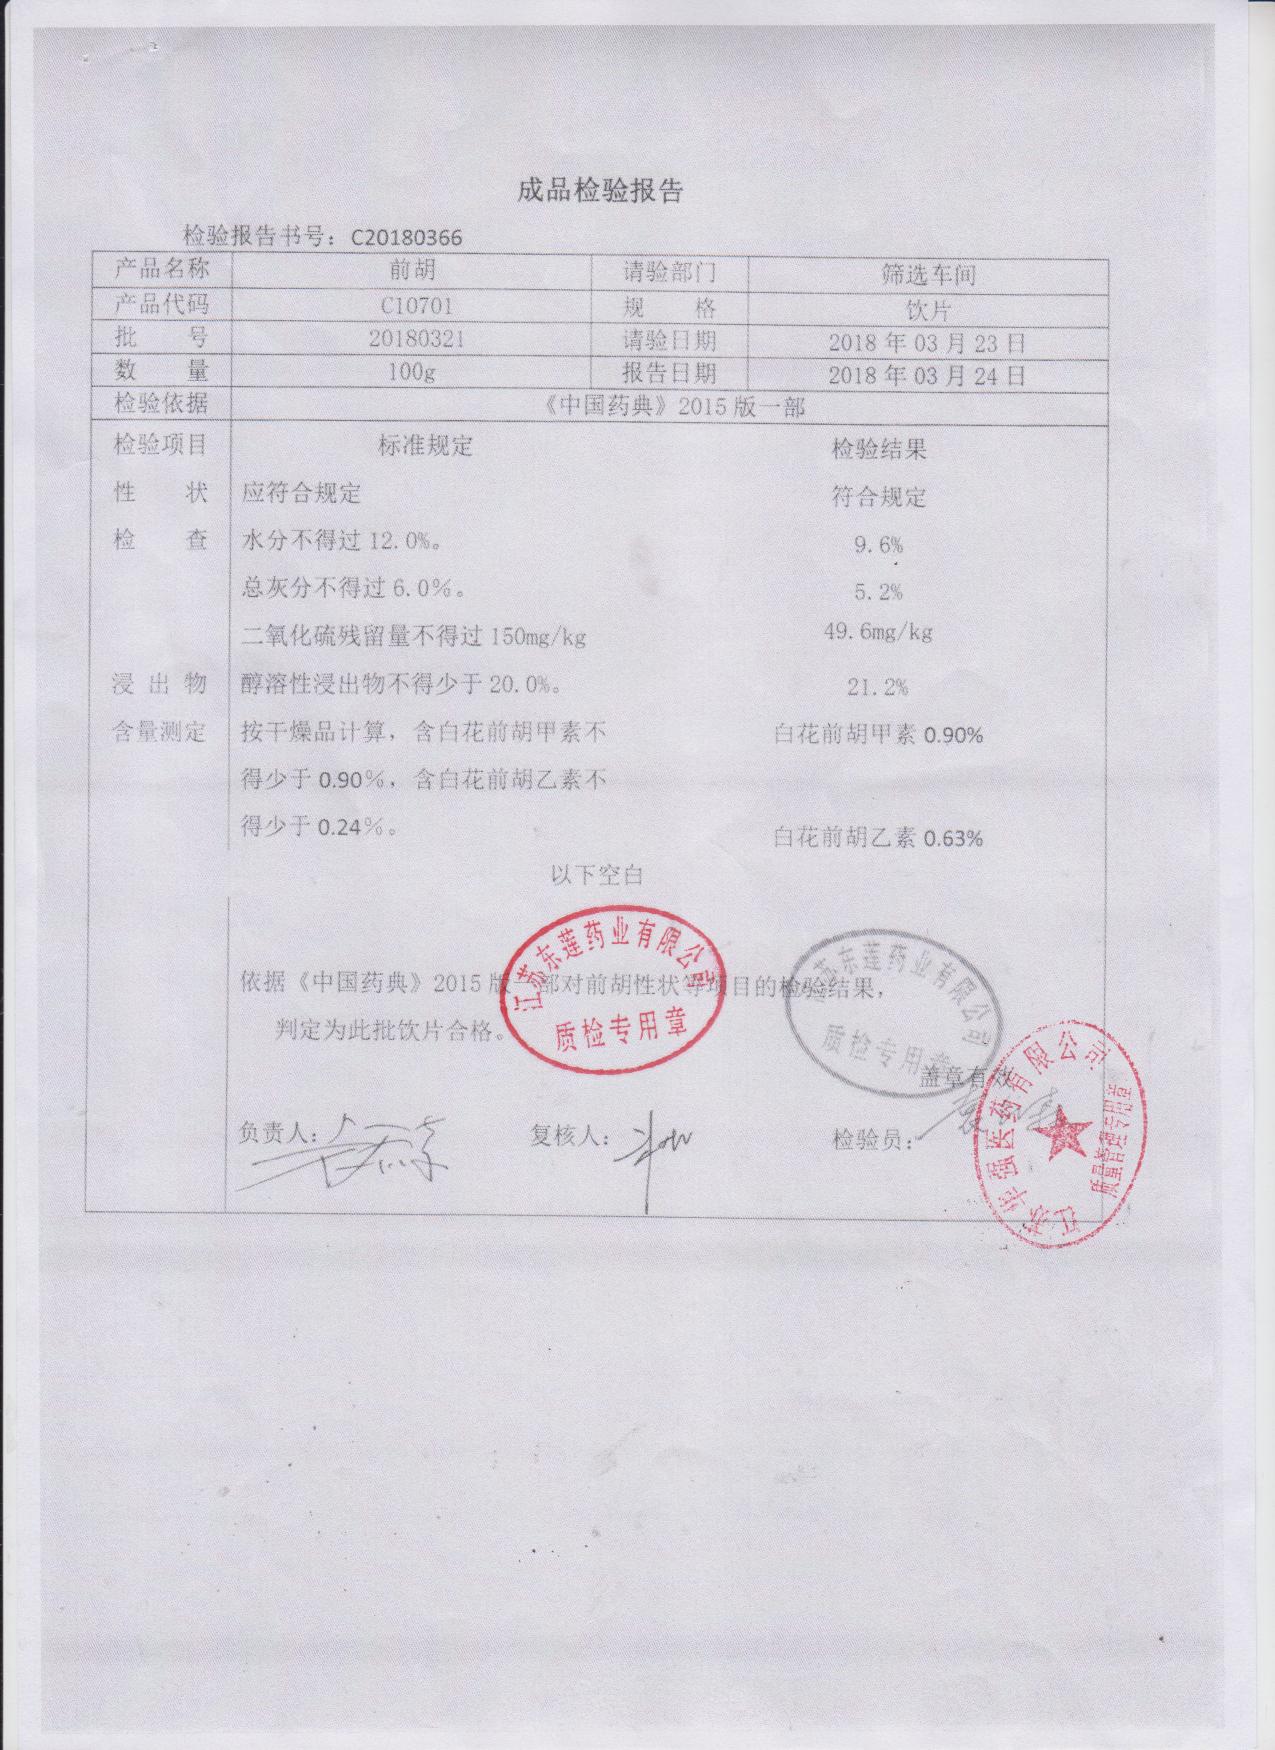 成品检验报告
检验报告书号：C20180366
产品名称 前胡 请验部门 筛选车间
产品代码 C10701 规 格 饮片
批 号 20180321 请验日期 2018 年 03 月 23 日
数 量 100g 报告日期 2018 年 03 月 24 日
检验依据 《中国药典》2015 版一部
检验项目 标准规定 检验结果
性 状 应符合规定 符合规定
检 查 水分不得过 12.0%。 9.6%
总灰分不得过 6.0%。 5.2%
二氧化硫残留量不得过 150mg/kg 49.6mg/kg
浸 出 物 醇溶性浸出物不得少于 20.0%。 21.2%
含量测定 按干燥品计算，含白花前胡甲素不 白花前胡甲素 0.90%
得少于 0.90%，含白花前胡乙素不
得少于 0.24%。 白花前胡乙素 0.63%
以下空白
江苏东莲药业有限公司
质检专用章
苏东莲药业有限公司
质检专用章
依据《中国药典》2015 版一部对前胡性状等项目的检验结果，
判定为此批饮片合格。
盖章有效
江苏华强医药有限公司
质量管理专用章
负责人： 复核人： 检验员：